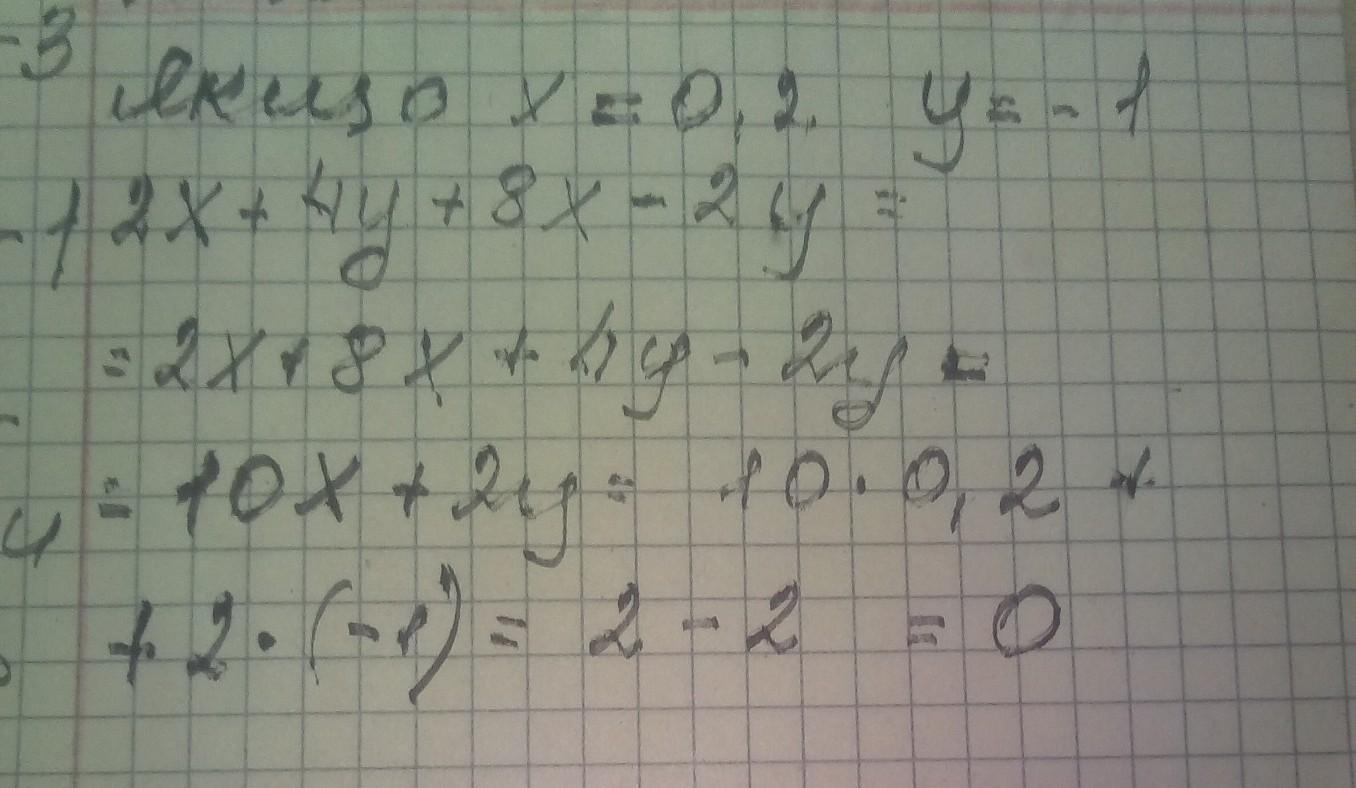 -3
Якщо x = 0,2 y = -1
-1 2x + 4y + 8x - 2y =
= 2x + 8x + 4y - 2y =
= 10x + 2y = 10 · 0,2 +
+ 2 · (-1) = 2 - 2 = 0